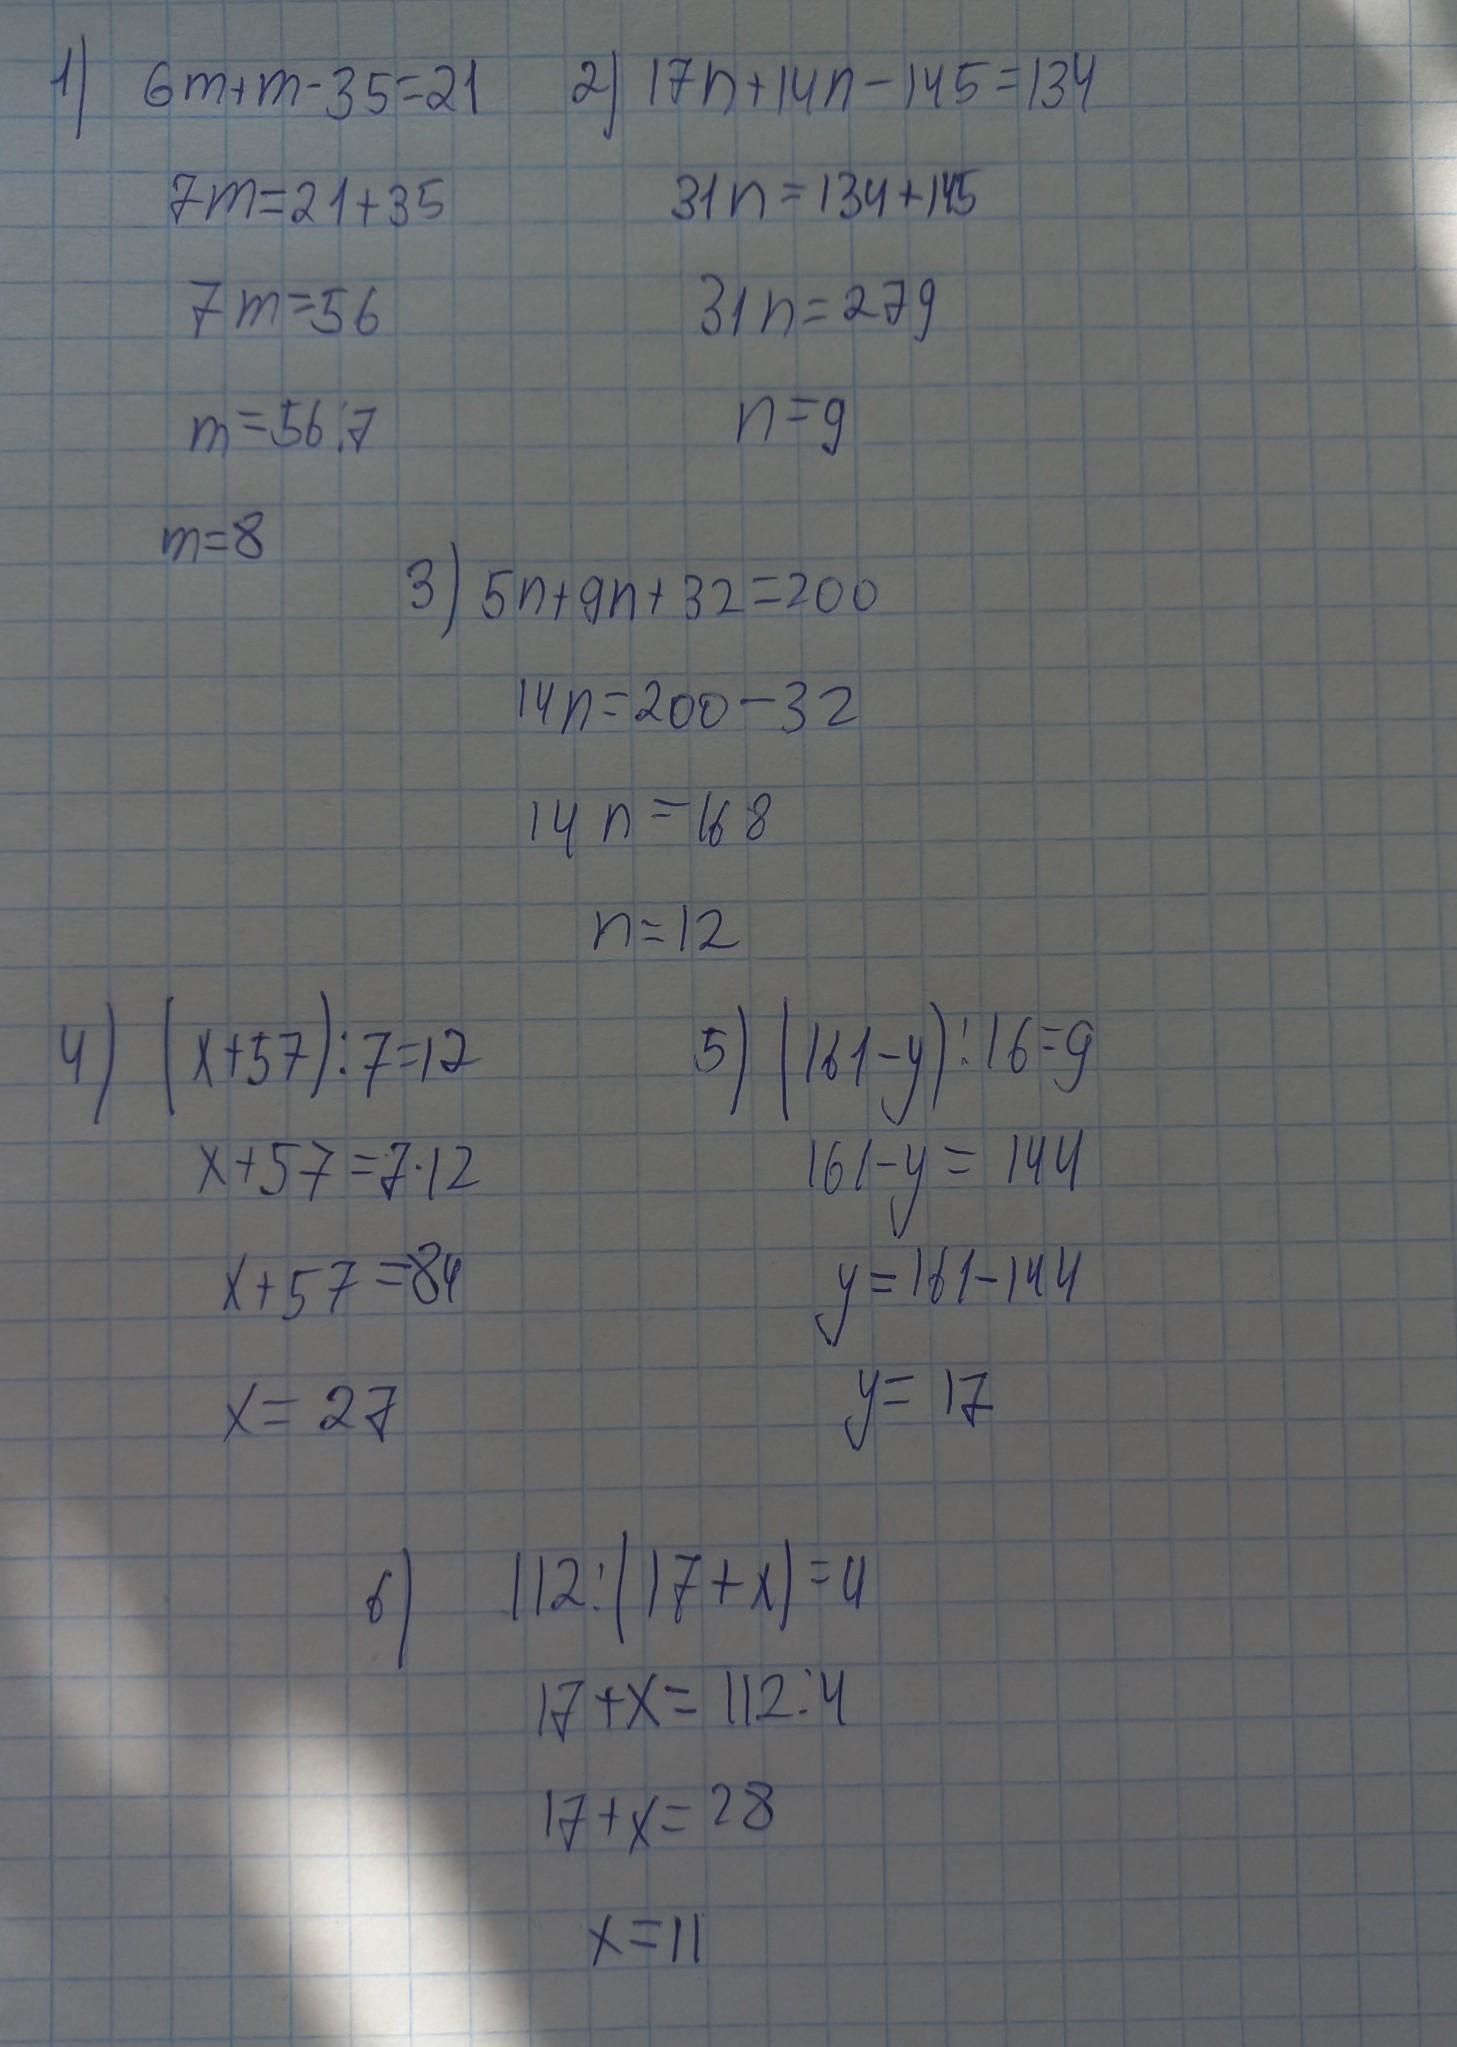 1) 6m+m-35=21
7m=21+35
7m=56
m=56:7
m=8
2) 17n+14n-145=134
31n=134+145
31n=279
n=9
3) 5n+9n+32=200
14n=200-32
14n=168
n=12
4) (x+57):7=12
x+57=7·12
x+57=84
x=27
5) (161-y):16=9
161-y=144
y=161-144
y=17
6) 112:(17+x)=4
17+x=112:4
17+x=28
x=11